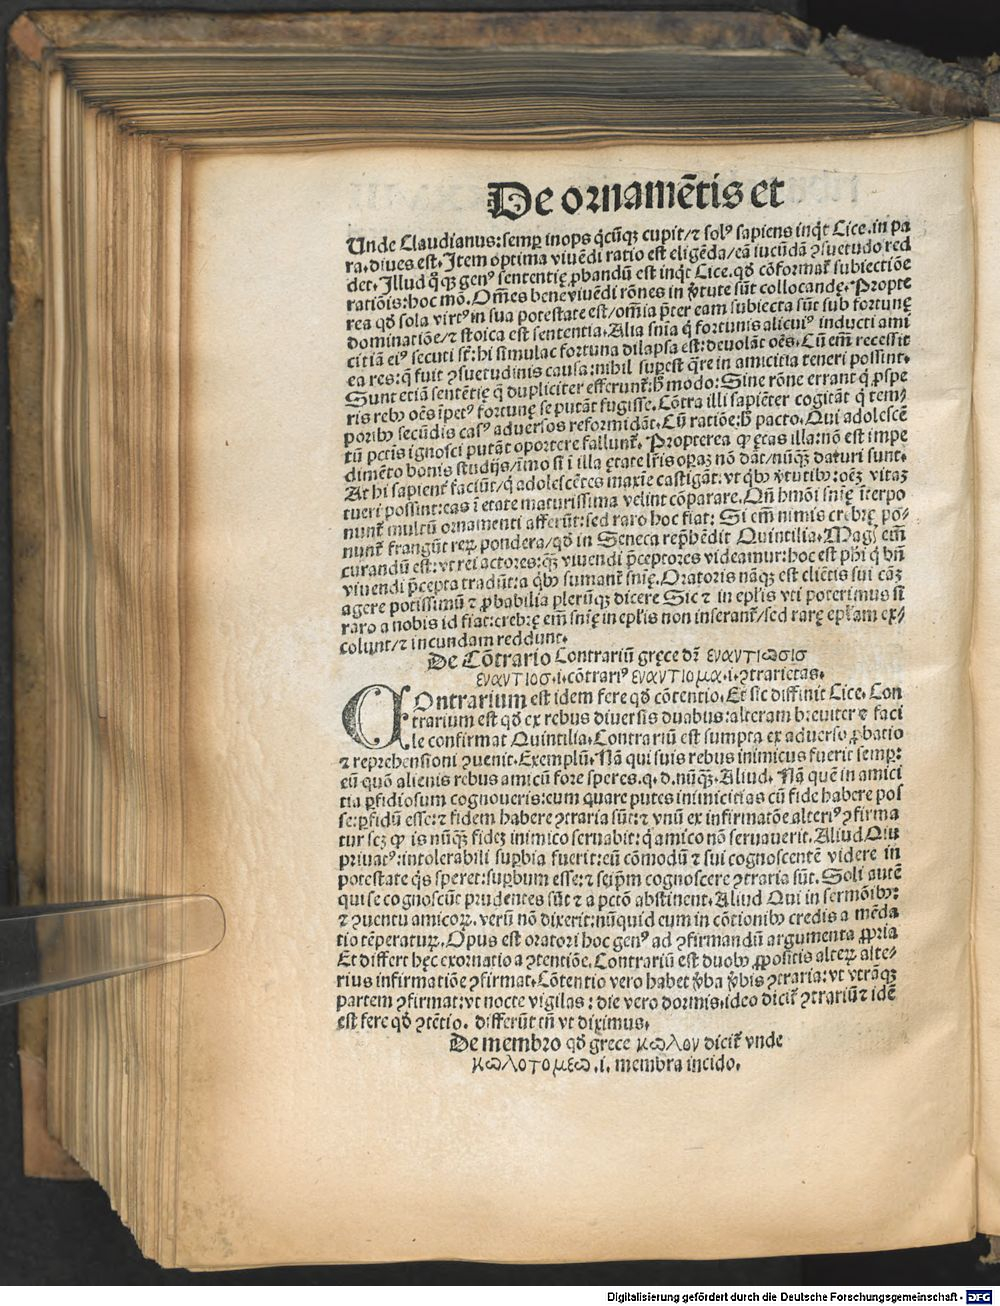 De ornamētis et
Unde Claudianus: semꝑ inops q̇cūqꝫ cupit/⁊ solꝰ sapiens inq̇t Cice. in pa
ra. dives est. Item optima vivēdi ratio est eligēda/eā iucūdā ꝯsuetudo red
det. Illud qͦqꝫ genꝰ sententię ꝓbandū est inq̇t Cice. qd̄ cōformat᷑ subiectiōe
ratiōis: hoc mō. Om̄es bene vivēdi rōnes in v̄tute sūt collocandę. Propte
rea qd̄ sola virtꝰ in sua potestate est/om̄ia p̄ter eam subiecta sūt sub fortunę
dominatiōe/⁊ stoica est sententia. Alia snīa q̇ fortunis alicuiꝰ inducti ami
citiā eiꝰ secuti sūt: hi simulac fortuna dilapsa est: devolāt oēs. Cū em̄ recessit
ea res: q̄ fuit ꝯsuetudinis causa: nihil suꝑest q̄re in amicitia teneri possint.
Sunt etiā sentētię q̄ dupliciter efferunt᷑: h̄ modo: Sine rōne errant q̇ ꝓspe
ris rebꝰ oēs īpetꝰ fortunę se putāt fugisse. Cōtra illi sapiēter cogitāt q̇ tem/
poribꝰ secūdis casꝰ adversos reformidāt. Cū ratiōe: h̄ pacto. Qui adolescē
tū pctīs ignosci putāt oportere fallunt᷑. Propterea ꝙ ętas illa: nō est impe
dimēto bonis studijs/īmo si ī illa ętate lr̄is oꝑaꝫ nō dāt/nūqꝫ daturi sunt.
At hi sapient᷑ faciūt/q̇ adolescētes maxīe castigāt: vt qͥbꝰ v̄tutibꝰ: oēꝫ vitaꝫ
tueri possint: eas ī etate maturissima velint cōparare. Qn̄ hmōi snīę īterpo
nunt᷑ multū ornamenti afferūt: sed raro hoc fiat: Si em̄ nimis crebrę po/
nunt᷑ frangūt reꝝ pondera/qd̄ in Seneca rep̄hēdit Quintilia. Magꝭ em̄
curandū est: vt rei actores: qꝫ vivendi p̄ceptores videamur: hoc est phī q̇ bn̄
vivendi p̄cepta tradūt: a qͥbꝰ sumant᷑ snīę. Oratoris nāqꝫ est cliētis sui cāꝫ
agere potissimū ⁊ ꝓbabilia plerūqꝫ dicere Sic ⁊ in epl̄is vti poterimus si
raro a nobis id fiat: crebrę em̄ snīę in epl̄is non inserant᷑/sed rarę epl̄am ex/
colunt/⁊ iucundam reddunt.
De Cōtrario Contrariū gręce dr̄ εναντιωσισ
εναντιοσ. i. cōtrariꝰ εναντιομα. i. ꝯtrarietas.
COntrarium est idem fere qd̄ cōtentio. Et sic diffinit Cice. Con
trarium est qd̄ ex rebus diversis duabus: alteram breuiter ⁊ faci
le confirmat Quintilia. Contrariū est sumpta ex adverso ꝓbatio
⁊ reprehensioni ꝯuenit. Exemplū. Nā qui suis rebus inimicus fuerit semꝑ:
eū quō alienis rebus amicū fore speres. q. d. nūqꝫ. Aliud. Nā quē in amici
tia ꝑfidiosum cognoueris: eum quare putes inimicitias cū fide habere pos
se: ꝑfidū esse: ⁊ fidem habere ꝯtraria sūt: ⁊ vnū ex infirmatōe alteriꝰ ꝯfirma
tur scꝫ ꝙ is nūqꝫ fideꝫ inimico seruabit: q̇ amico nō seruauerit. Aliud Qui
privatꝰ: intolerabili suꝑbia fuerit: eū cōmodū ⁊ sui cognoscentē videre in
potestate q̇s speret: suꝑbum esse: ⁊ seip̄m cognoscere ꝯtraria sūt. Soli autē
qui se cognoscūt prudentes sūt ⁊ a pctō abstinent. Aliud Qui in sermōibꝰ:
⁊ ꝯuentu amicoꝝ. verū nō dixerit: nūquid eum in cōtionibꝰ credis a mēda
tio tēperaturꝝ. Opus est oratori hoc genꝰ ad ꝯfirmandū argumenta ꝓpria
Et differt hęc exornatio a ꝯtentiōe. Contrariū est duobꝰ ꝓpositis alteꝝ alte/
rius infirmatiōe ꝯfirmat. Cōtentio vero habet v̄ba v̄bis ꝯtraria: vt vtrāqꝫ
partem ꝯfirmat: vt nocte vigilas: die vero dormis. ideo dicit᷑ ꝯtrariū ⁊ idē
est fere qd̄ ꝯtētio. differūt tn̄ vt diximus.
De membro qd̄ grece κωλον dicit᷑ vnde
κωλοτομεω. i. membra incido.
Digitalisierung gefördert durch die Deutsche Forschungsgemeinschaft - DFG